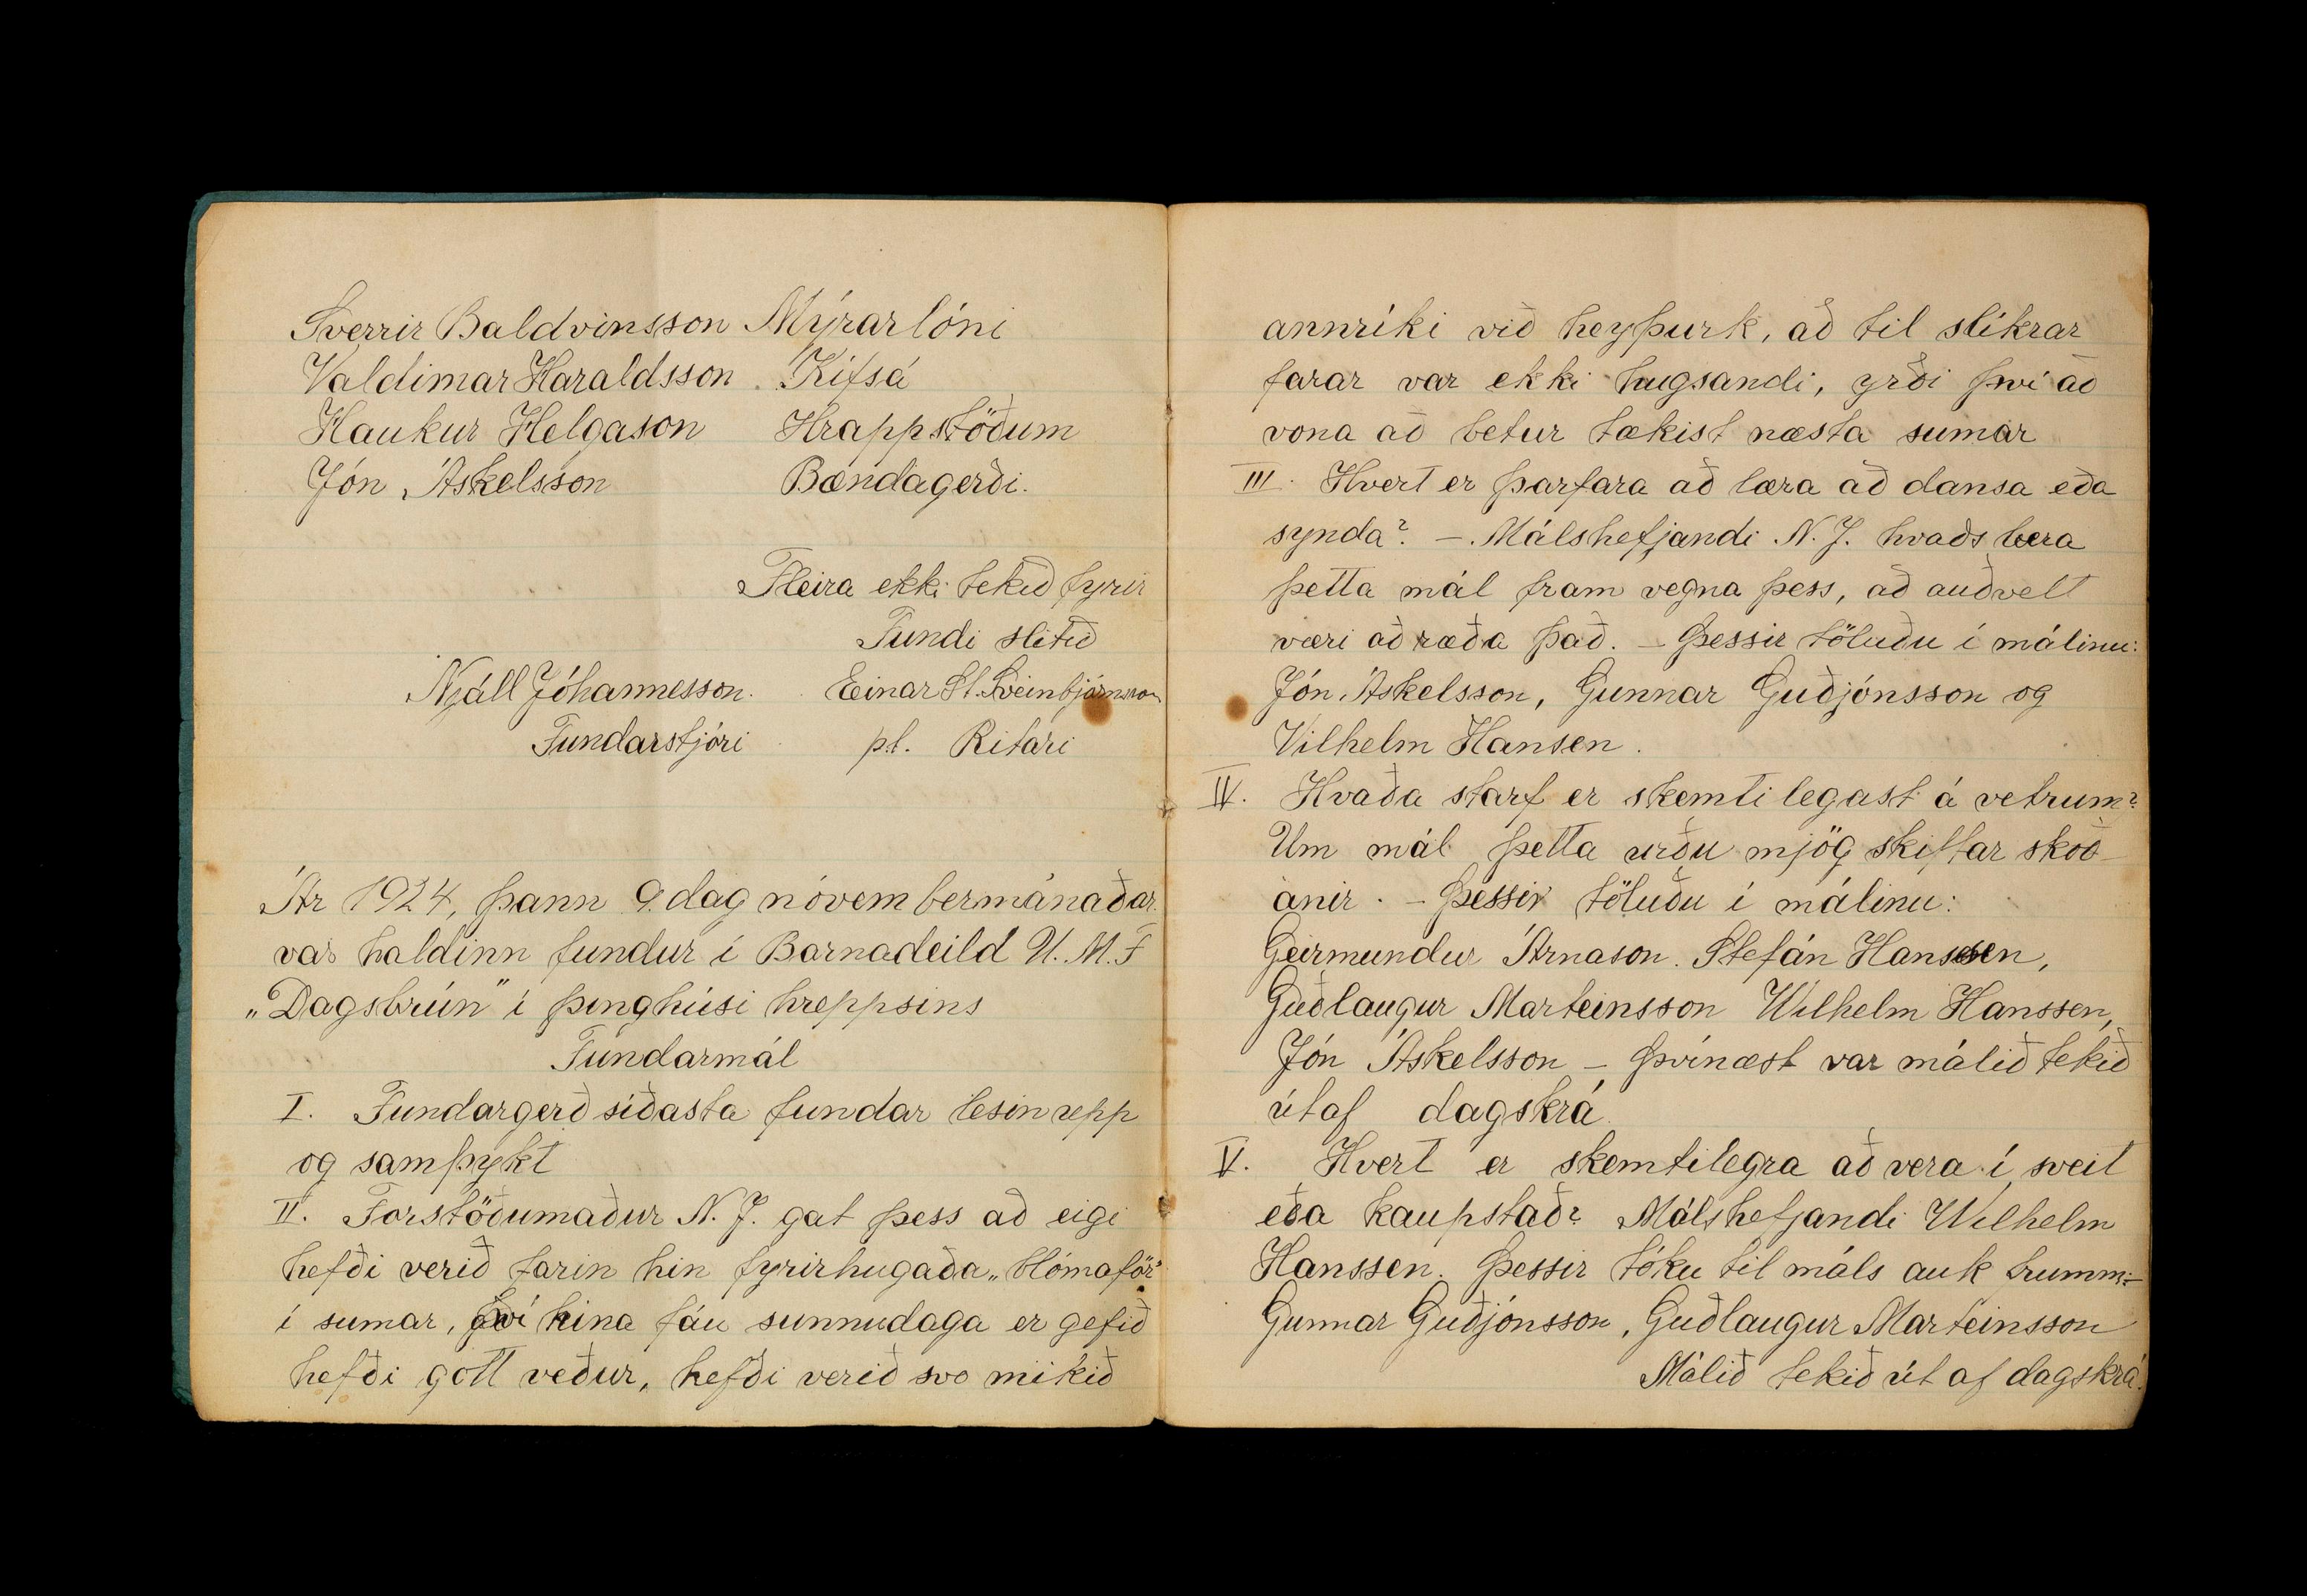 Sverrir Baldvinsson Mýrarlóni
Valdimar Haraldsson. Kífsá
Haukur Helgason Hrappstöðum
Jón Áskelsson Bændagerði.
Fleira ekki tekið fyrir
Fundi slitið
Njáll Jóhannesson. Einar St. Sveinbjörnsson
Fundarstjóri p.t. Ritari
Ár 1924, þann 9. dag nóvembermánaðar.
var haldinn fundur í Barnadeild U.M.F
„Dagsbrún" í þinghúsi hreppsins
Fundarmál
I. Fundargerð síðasta fundar lesin upp
og samþykt
II. Forstöðumaður N.J. gat þess að eigi
hefði verið farin hin fyrirhugaða „blómaför"
í sumar, því hina fáu sunnudaga er gefið
hefði gott veður, hefði verið svo mikið
annríki við heyþurk, að til slíkrar
farar var ekki hugsandi, yrði því að
vona að betur tækist næsta sumar
III. Hvert er þarfara að læra að dansa eða
synda? - Málshefjandi N.J. kvaðs bera
þetta mál fram vegna þess, að auðvelt
væri að ræða það. - Þessir töluðu í málinu:
Jón Áskelsson, Gunnar Guðjónsson og
Vilhelm Hansen.
IV. Hvaða starf er skemtilegast á vetrum?
Um mál þetta urðu mjög skiftar skoð-
anir. - Þessir töluðu í málinu:
Geirmundur Árnason. Stefán Hanssen,
Guðlaugur Marteinsson Wilhelm Hanssen,
Jón Áskelsson - Þvínæst var málið tekið
útaf dagskrá.
V. Hvert er skemtilegra að vera í sveit
eða kaupstað? Málshefjandi Wilhelm
Hanssen. Þessir tóku til máls auk frumm:-
Gunnar Guðjónsson, Guðlaugur Marteinsson
Málið tekið út af dagskrá.